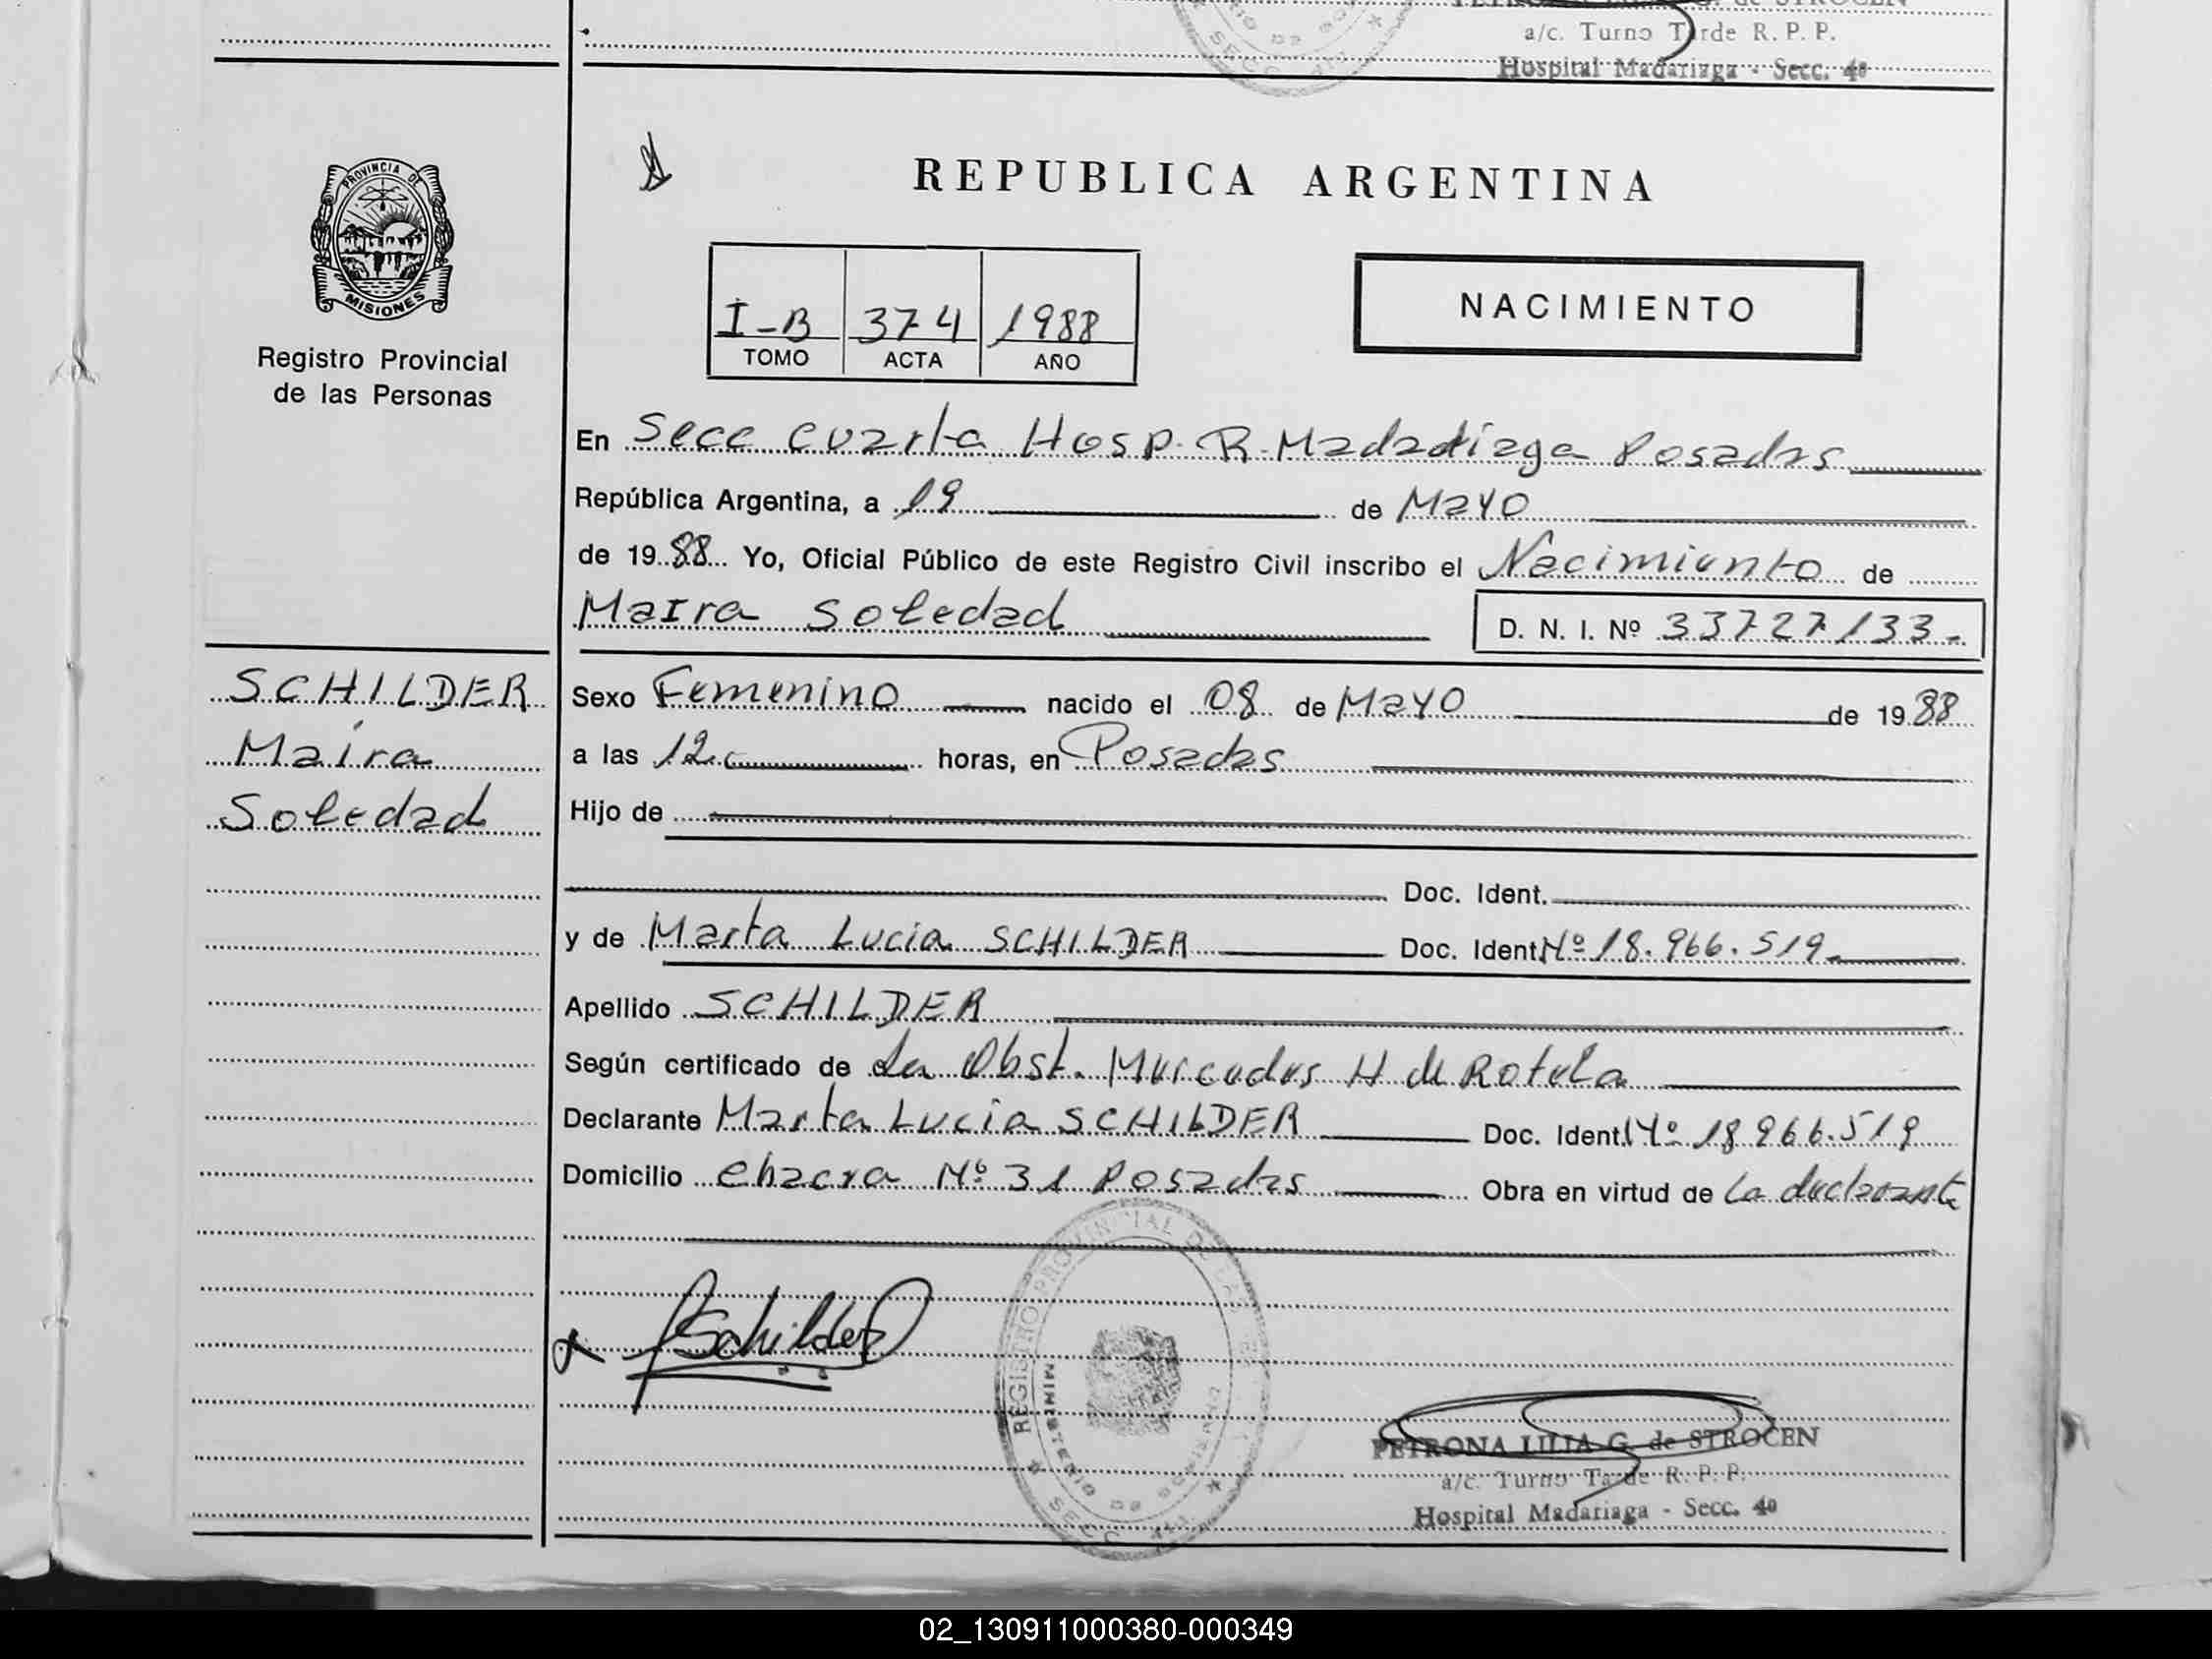 a/c. Turno Tarde R. P. P.
Hospital Madariaga - Secc. 4º
PROVINCIA DE
MISIONES
Registro Provincial
de las Personas
REPUBLICA ARGENTINA
NACIMIENTO
I-B 374 1988
TOMO ACTA AÑO
En Secc cuarta Hosp. R. Madadiaga Posadas
República Argentina, a 19 de Mayo
de 1988 Yo, Oficial Público de este Registro Civil inscribo el Nacimiento de
Maira Soledad
D. N. I. Nº 33727133-
SCHILDER
Maira
Soledad
Sexo Femenino nacido el 08 de Mayo de 1988
a las 12 horas, en Posadas
Hijo de
Doc. Ident.
y de Marta Lucia SCHILDER Doc. Ident. Nº 18.966.519-
Apellido SCHILDER
Según certificado de La Obst. Mercedes H de Rotela
Declarante Marta Lucia SCHILDER Doc. Ident. Nº 18966.519
Domicilio Chacra Nº 31 Posadas Obra en virtud de La declarante
Schilder
REGISTRO PROVINCIAL DE LAS
MINISTERIO DE GOBIERNO
SECC
PETRONA LILIA G. de STROCEN
a/c. Turno Tarde R. P. P.
Hospital Madariaga - Secc. 4º
02_130911000380-000349